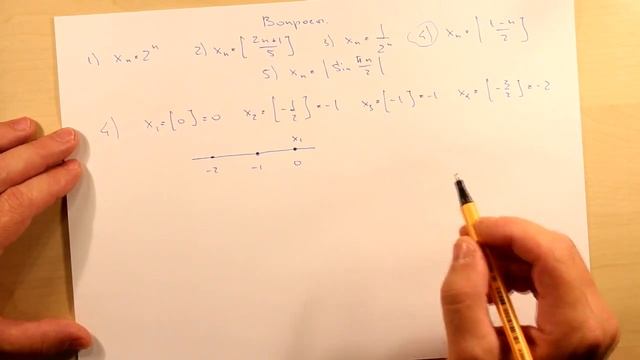 Вопросы.
1) xₙ = 2ⁿ 2) xₙ = [(2n+1)/5] 3) xₙ = 1/2ⁿ 4) xₙ = [(1-n)/2]
5) xₙ = |sin πn/2|
4) x₁ = [0] = 0 x₂ = [-1/2] = -1 x₃ = [-1] = -1 x₄ = [-3/2] = -2
x₁
-2 -1 0